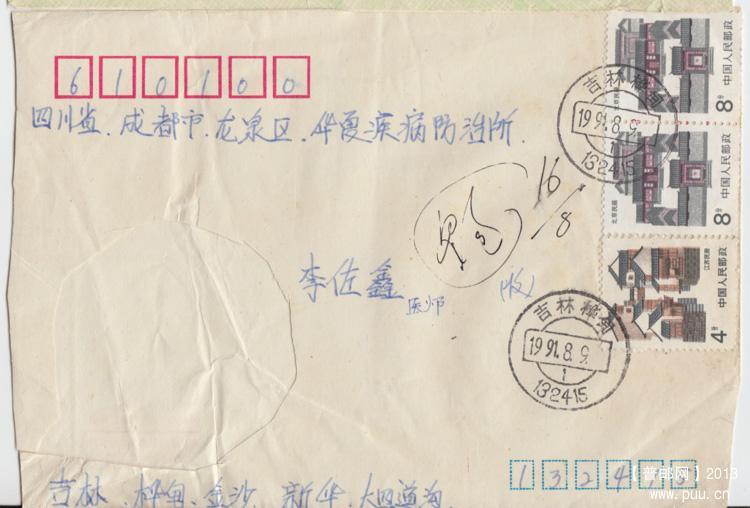 610100
四川省、成都市、龙泉区、华夏疾病防治所
16/8
李佐鑫 医师
(收)
吉林桦甸
1991.8.9.
1
132415
吉林桦甸
1991.8.9.
1
132415
中国人民邮政
8分
北京民居
中国人民邮政
8分
江苏民居
中国人民邮政
4分
吉林、桦甸、金沙、新华、大四道沟
1324
【普邮网】2013
www.puu.cn